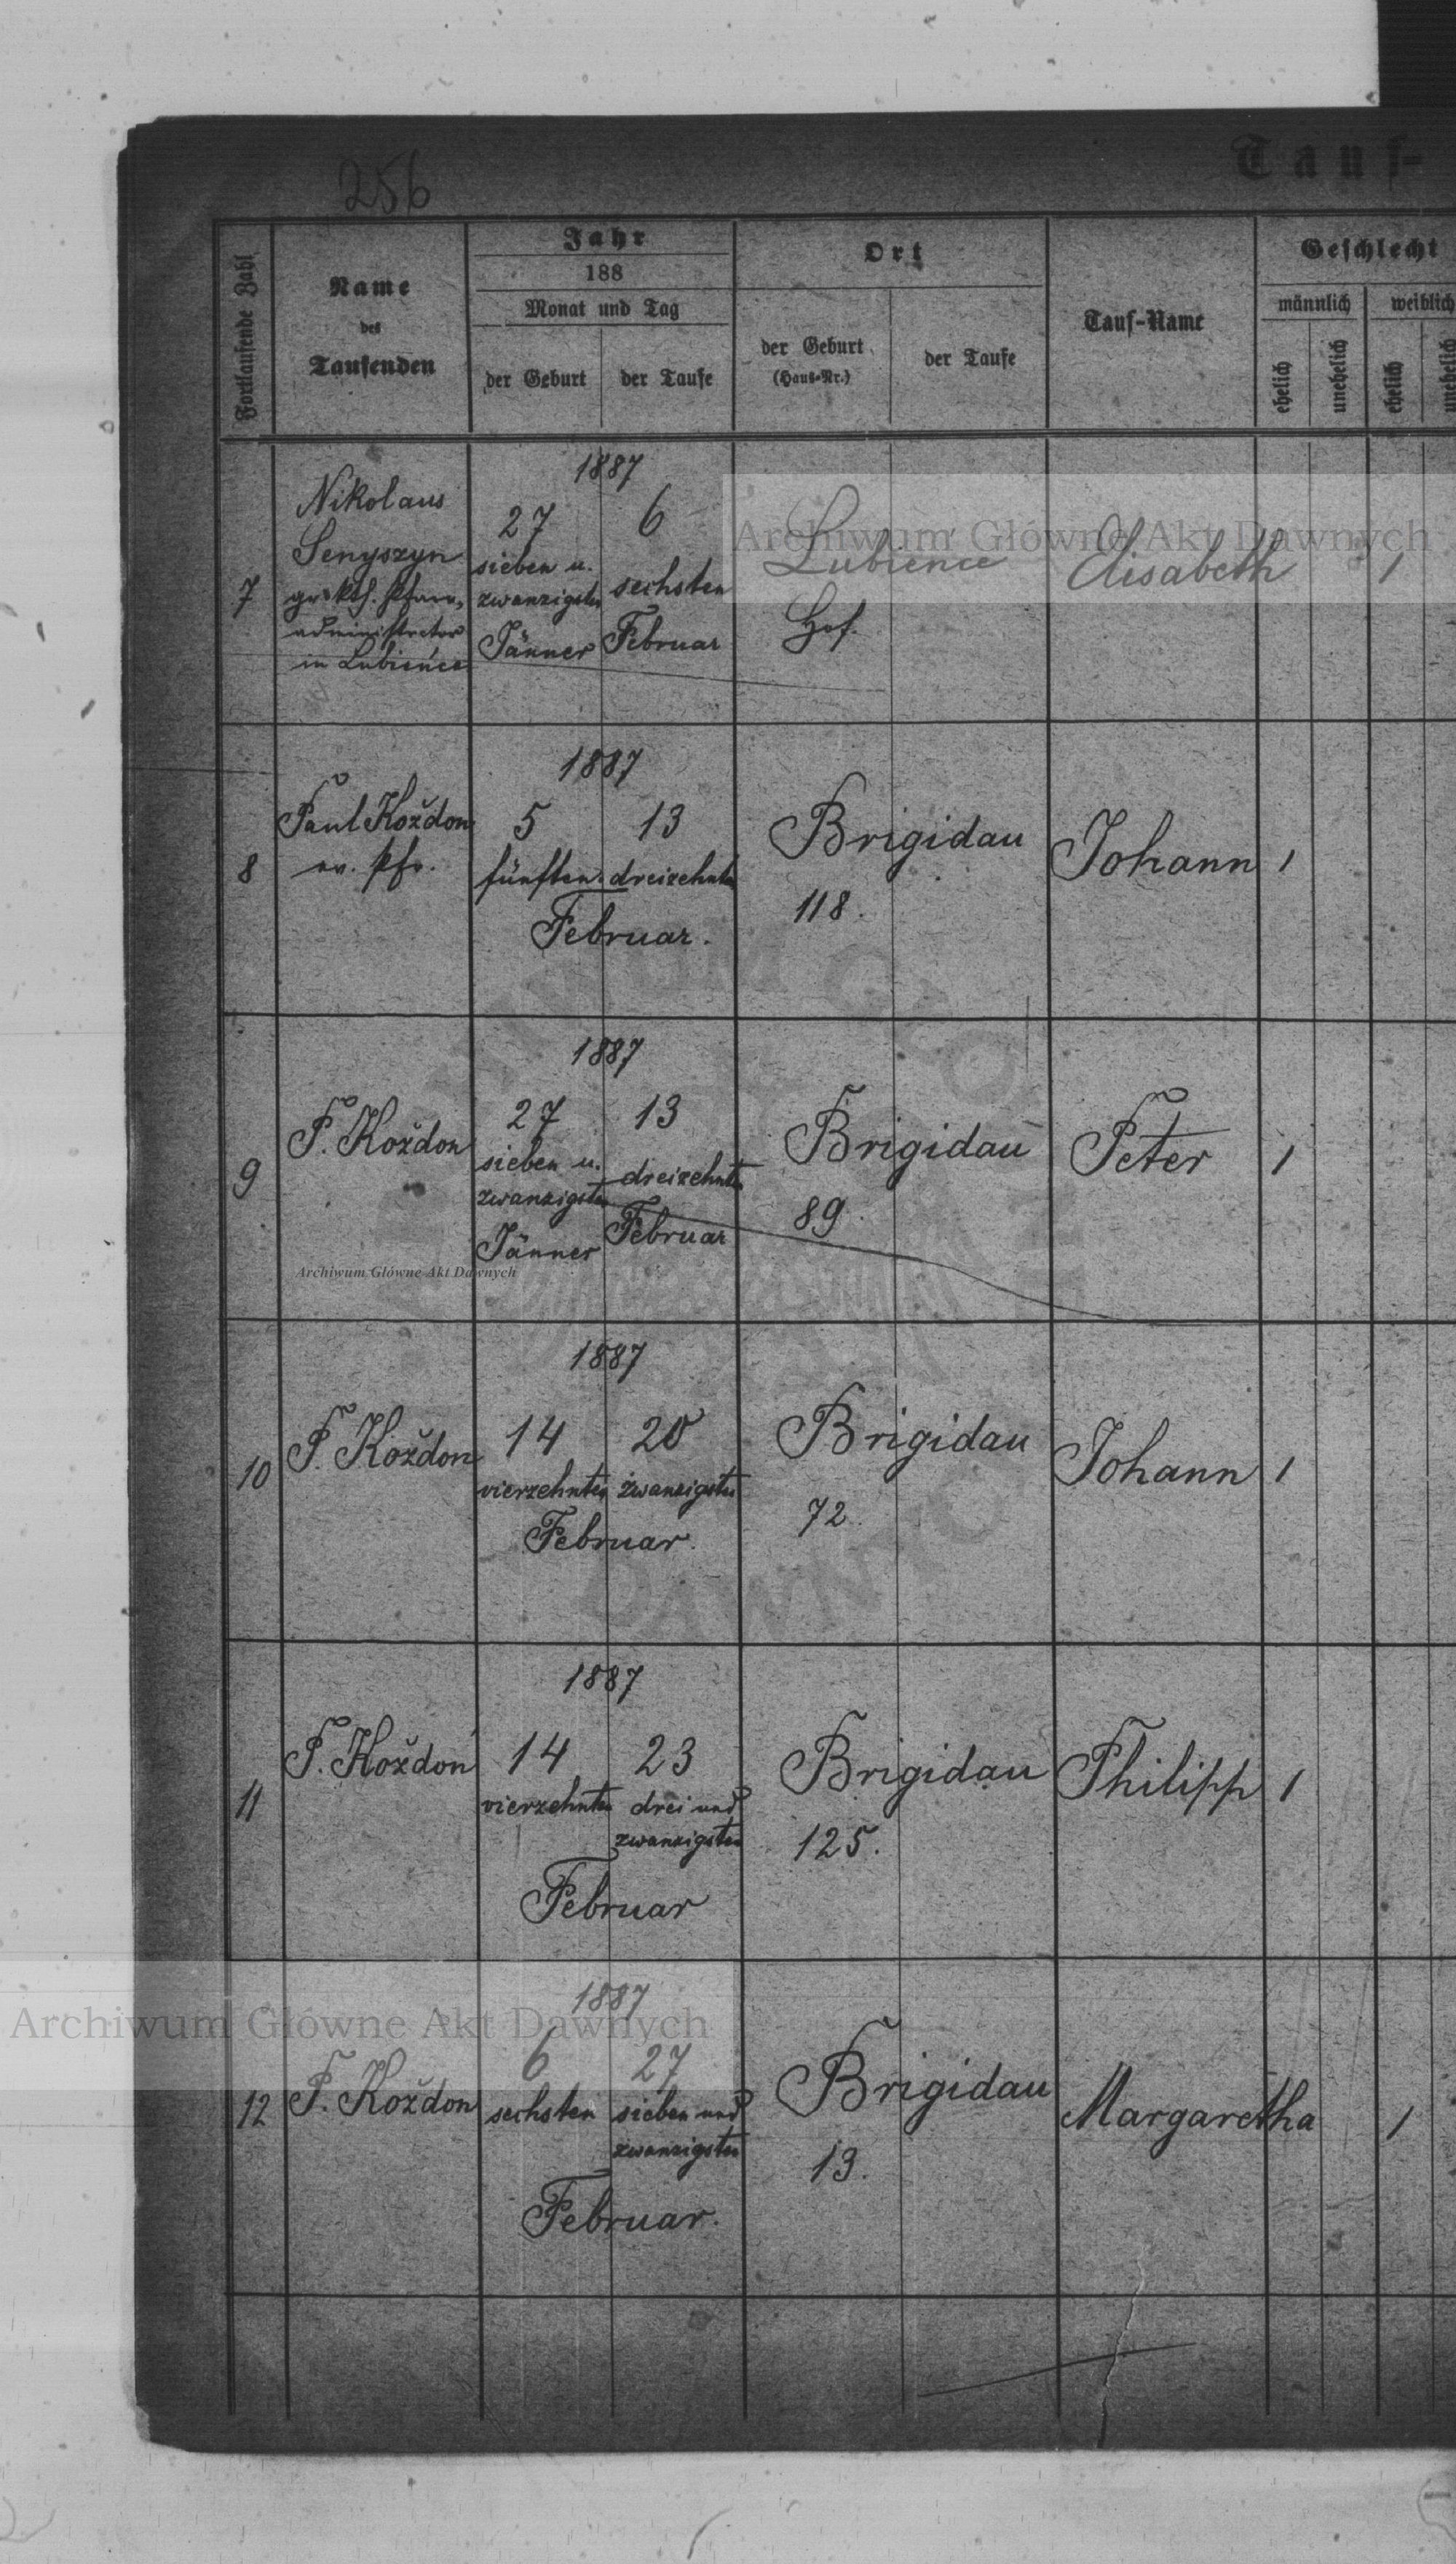 256
Tauf-
Fortlaufende Zahl
Name
des
Taufenden
Jahr
188
Monat und Tag
der Geburt
der Taufe
Ort
der Geburt
(Haus-Nr.)
der Taufe
Tauf-Name
Geschlecht
männlich
weiblich
ehelich
unehelich
ehelich
unehelich
7
Nikolaus
Senyszyn
gr. kth. Pfarr-
administrator
in Lubience
1887
27
sieben u.
zwanzigsten
Jänner
6
sechsten
Februar
Lubience
Hof.
Elisabeth
1
8
Paul Koždon
ev. Pfr.
1887
5
fünften
13
dreizehnten
Februar.
Brigidau
118.
Johann
1
9
P. Koždon
1887
27
sieben u.
zwanzigsten
Jänner
13
dreizehnten
Februar
Brigidau
89
Peter
1
10
P. Koždon
1887
14
vierzehnten
20
zwanzigsten
Februar.
Brigidau
72.
Johann
1
11
P. Koždon
1887
14
vierzehnten
23
drei und
zwanzigsten
Februar
Brigidau
125.
Philipp
1
12
P. Koždon
1887
6
sechsten
27
sieben und
zwanzigsten
Februar.
Brigidau
13.
Margaretha
1
Archiwum Główne Akt Dawnych
Archiwum Główne Akt Dawnych
Archiwum Główne Akt Dawnych